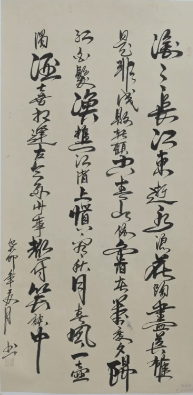 滾々長江東逝水浪花淘盡英雄
是非成敗轉頭空青山依舊在幾度夕陽
紅白髮漁樵江渚上慣看秋月春風一壺
濁酒喜相逢古今多少事都付笑談中
癸卯年月